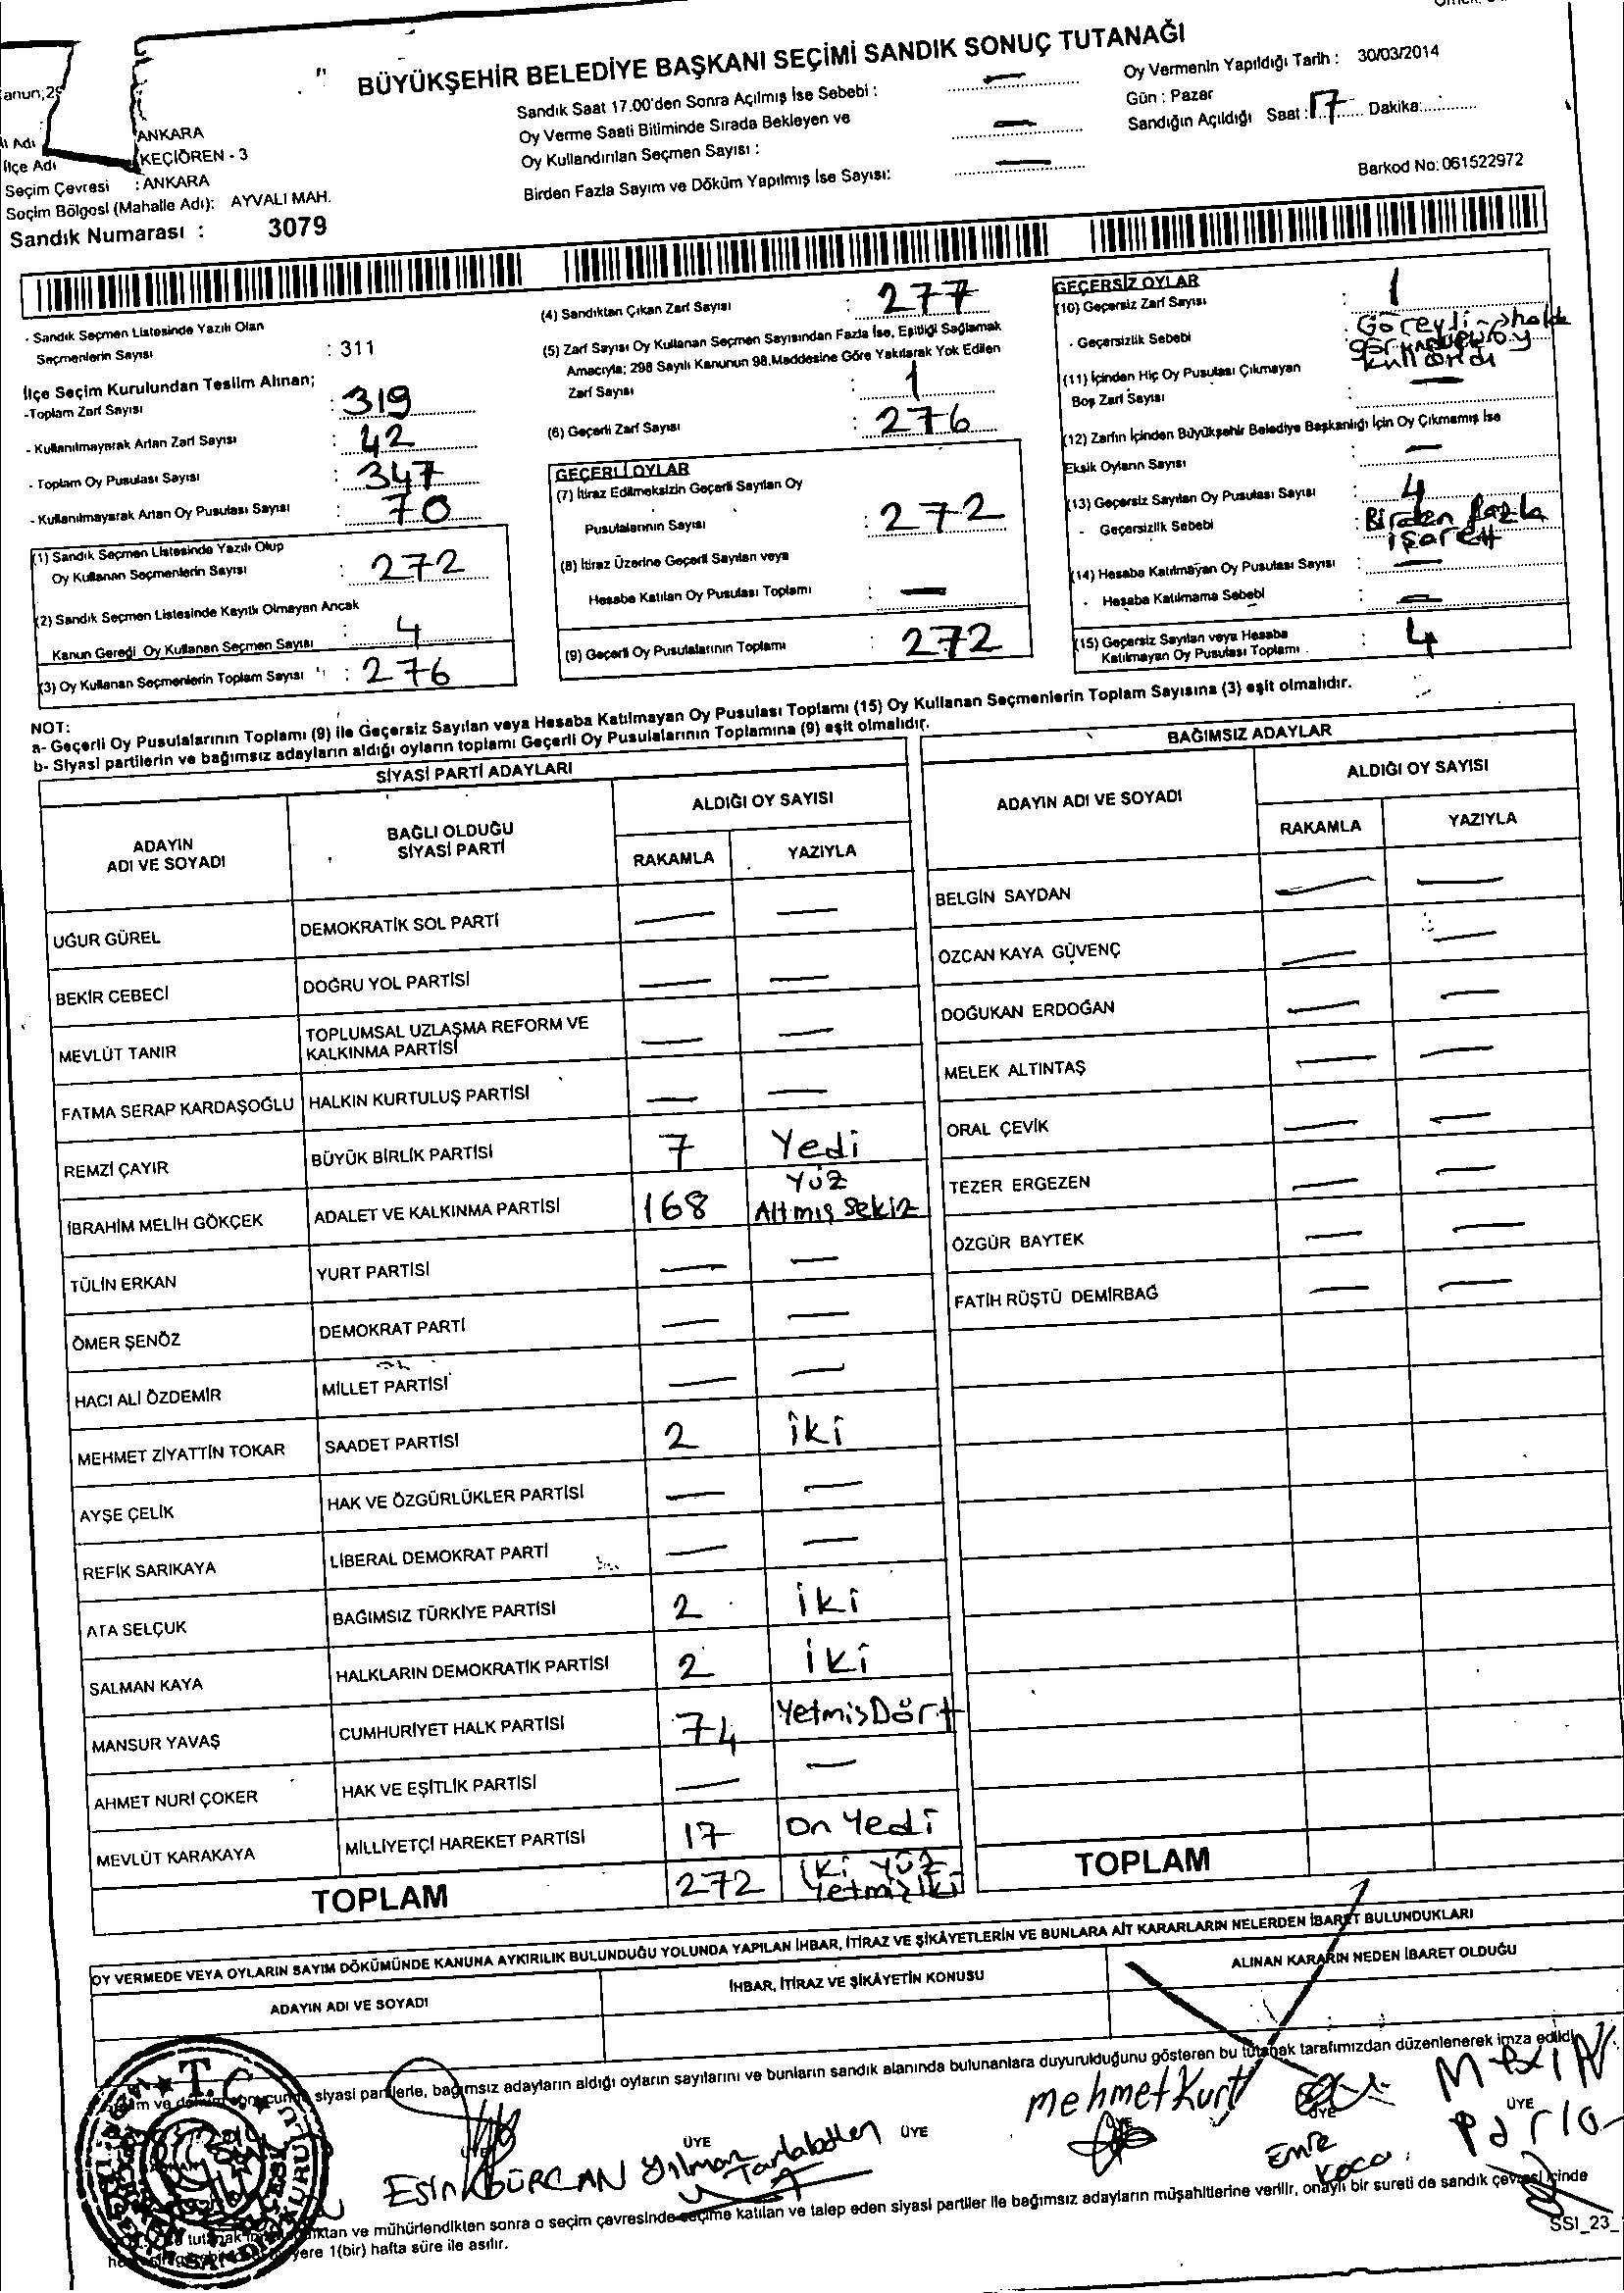 BÜYÜKŞEHİR BELEDİYE BAŞKANI SEÇİMİ SANDIK SONUÇ TUTANAĞI
ANKARA
İlçe Adı KEÇİÖREN - 3
Seçim Çevresi : ANKARA
Seçim Bölgesi (Mahalle Adı): AYVALI MAH.
Sandık Numarası : 3079
Sandık Saat 17.00'den Sonra Açılmış İse Sebebi : —
Oy Verme Saati Bitiminde Sırada Bekleyen ve
Oy Kullandırılan Seçmen Sayısı : —
Birden Fazla Sayım ve Döküm Yapılmış İse Sayısı: —
Oy Vermenin Yapıldığı Tarih : 30/03/2014
Gün : Pazar
Sandığın Açıldığı Saat : 17 Dakika:
Barkod No: 061522972
- Sandık Seçmen Listesinde Yazılı Olan
Seçmenlerin Sayısı : 311
İlçe Seçim Kurulundan Teslim Alınan;
-Toplam Zarf Sayısı : 319
- Kullanılmayarak Artan Zarf Sayısı : 42
- Toplam Oy Pusulası Sayısı : 347
- Kullanılmayarak Artan Oy Pusulası Sayısı : 70
(1) Sandık Seçmen Listesinde Yazılı Olup
Oy Kullanan Seçmenlerin Sayısı : 272
(2) Sandık Seçmen Listesinde Kayıtlı Olmayan Ancak
Kanun Gereği Oy Kullanan Seçmen Sayısı : 4
(3) Oy Kullanan Seçmenlerin Toplam Sayısı : 276
(4) Sandıktan Çıkan Zarf Sayısı : 277
(5) Zarf Sayısı Oy Kullanan Seçmen Sayısından Fazla İse, Eşitliği Sağlamak
Amacıyla; 298 Sayılı Kanunun 98.Maddesine Göre Yakılarak Yok Edilen
Zarf Sayısı : 1
(6) Geçerli Zarf Sayısı : 276
GEÇERLİ OYLAR
(7) İtiraz Edilmeksizin Geçerli Sayılan Oy
Pusulalarının Sayısı : 272
(8) İtiraz Üzerine Geçerli Sayılan veya
Hesaba Katılan Oy Pusulası Toplamı : —
(9) Geçerli Oy Pusulalarının Toplamı : 272
GEÇERSİZ OYLAR
(10) Geçersiz Zarf Sayısı : 1
- Geçersizlik Sebebi :
kullandı
(11) İçinden Hiç Oy Pusulası Çıkmayan
Boş Zarf Sayısı : —
(12) Zarfın İçinden Büyükşehir Belediye Başkanlığı İçin Oy Çıkmamış İse
Eksik Oyların Sayısı : —
(13) Geçersiz Sayılan Oy Pusulası Sayısı : 4
- Geçersizlik Sebebi : Birden fazla
işaret
(14) Hesaba Katılmayan Oy Pusulası Sayısı : —
- Hesaba Katılmama Sebebi : —
(15) Geçersiz Sayılan veya Hesaba
Katılmayan Oy Pusulası Toplamı : 4
NOT:
a- Geçerli Oy Pusulalarının Toplamı (9) ile Geçersiz Sayılan veya Hesaba Katılmayan Oy Pusulası Toplamı (15) Oy Kullanan Seçmenlerin Toplam Sayısına (3) eşit olmalıdır.
b- Siyasi partilerin ve bağımsız adayların aldığı oyların toplamı Geçerli Oy Pusulalarının Toplamına (9) eşit olmalıdır.
SİYASİ PARTİ ADAYLARI
ADAYIN
ADI VE SOYADI
BAĞLI OLDUĞU
SİYASİ PARTİ
ALDIĞI OY SAYISI
RAKAMLA YAZIYLA
UĞUR GÜREL DEMOKRATİK SOL PARTİ — —
BEKİR CEBECİ DOĞRU YOL PARTİSİ — —
MEVLÜT TANIR TOPLUMSAL UZLAŞMA REFORM VE
KALKINMA PARTİSİ — —
FATMA SERAP KARDAŞOĞLU HALKIN KURTULUŞ PARTİSİ — —
REMZİ ÇAYIR BÜYÜK BİRLİK PARTİSİ 7 Yedi
İBRAHİM MELİH GÖKÇEK ADALET VE KALKINMA PARTİSİ 168 Yüz
Altmış Sekiz
TÜLİN ERKAN YURT PARTİSİ — —
ÖMER ŞENÖZ DEMOKRAT PARTİ — —
HACI ALİ ÖZDEMİR MİLLET PARTİSİ — —
MEHMET ZİYATTİN TOKAR SAADET PARTİSİ 2 iki
AYŞE ÇELİK HAK VE ÖZGÜRLÜKLER PARTİSİ — —
REFİK SARIKAYA LİBERAL DEMOKRAT PARTİ — —
ATA SELÇUK BAĞIMSIZ TÜRKİYE PARTİSİ 2 iki
SALMAN KAYA HALKLARIN DEMOKRATİK PARTİSİ 2 iki
MANSUR YAVAŞ CUMHURİYET HALK PARTİSİ 74 YetmisDört
AHMET NURİ ÇOKER HAK VE EŞİTLİK PARTİSİ — —
MEVLÜT KARAKAYA MİLLİYETÇİ HAREKET PARTİSİ 17 On Yedi
TOPLAM 272 İki Yüz
Yetmişiki
BAĞIMSIZ ADAYLAR
ADAYIN ADI VE SOYADI
ALDIĞI OY SAYISI
RAKAMLA YAZIYLA
BELGİN SAYDAN — —
ÖZCAN KAYA GÜVENÇ — —
DOĞUKAN ERDOĞAN — —
MELEK ALTINTAŞ — —
ORAL ÇEVİK — —
TEZER ERGEZEN — —
ÖZGÜR BAYTEK — —
FATİH RÜŞTÜ DEMİRBAĞ — —
TOPLAM
OY VERMEDE VEYA OYLARIN SAYIM DÖKÜMÜNDE KANUNA AYKIRILIK BULUNDUĞU YOLUNDA YAPILAN İHBAR, İTİRAZ VE ŞİKÂYETLERİN VE BUNLARA AİT KARARLARIN NELERDEN İBARET BULUNDUKLARI
ADAYIN ADI VE SOYADI
İHBAR, İTİRAZ VE ŞİKÂYETİN KONUSU
ALINAN KARARIN NEDEN İBARET OLDUĞU
siyasi partilerle, bağımsız adayların aldığı oyların sayılarını ve bunların sandık alanında bulunanlara duyurulduğunu gösteren bu tutanak tarafımızdan düzenlenerek imza edildi.
ÜYE ÜYE ÜYE ÜYE
ESİN GÜRCAN
Yılmaz
mehmet Kurt
Emre
Koca
tutanak
ve mühürlendikten sonra o seçim çevresinde seçime katılan ve talep eden siyasi partiler ile bağımsız adayların müşahitlerine verilir, onaylı bir sureti de sandık çevresi içinde
yere 1(bir) hafta süre ile asılır.
SSI_23_